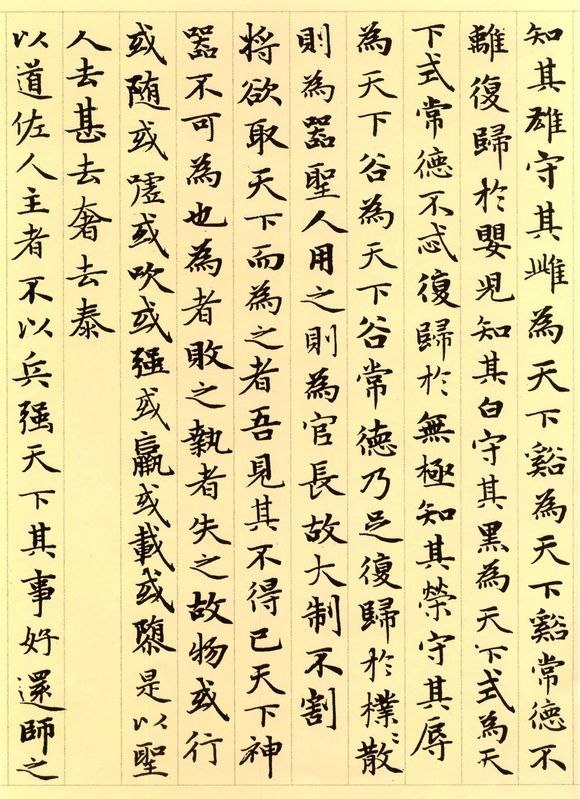 知其雄守其雌為天下谿為天下谿常德不
離復歸於嬰兒知其白守其黑為天下式為天
下式常德不忒復歸於無極知其榮守其辱
為天下谷為天下谷常德乃足復歸於樸〻散
則為器聖人用之則為官長故大制不割
将欲取天下而為之者吾見其不得已天下神
器不可為也為者敗之執者失之故物或行
或随或噓或吹或强或羸或載或隳是以聖
人去甚去奢去泰
以道佐人主者不以兵强天下其事好還師之